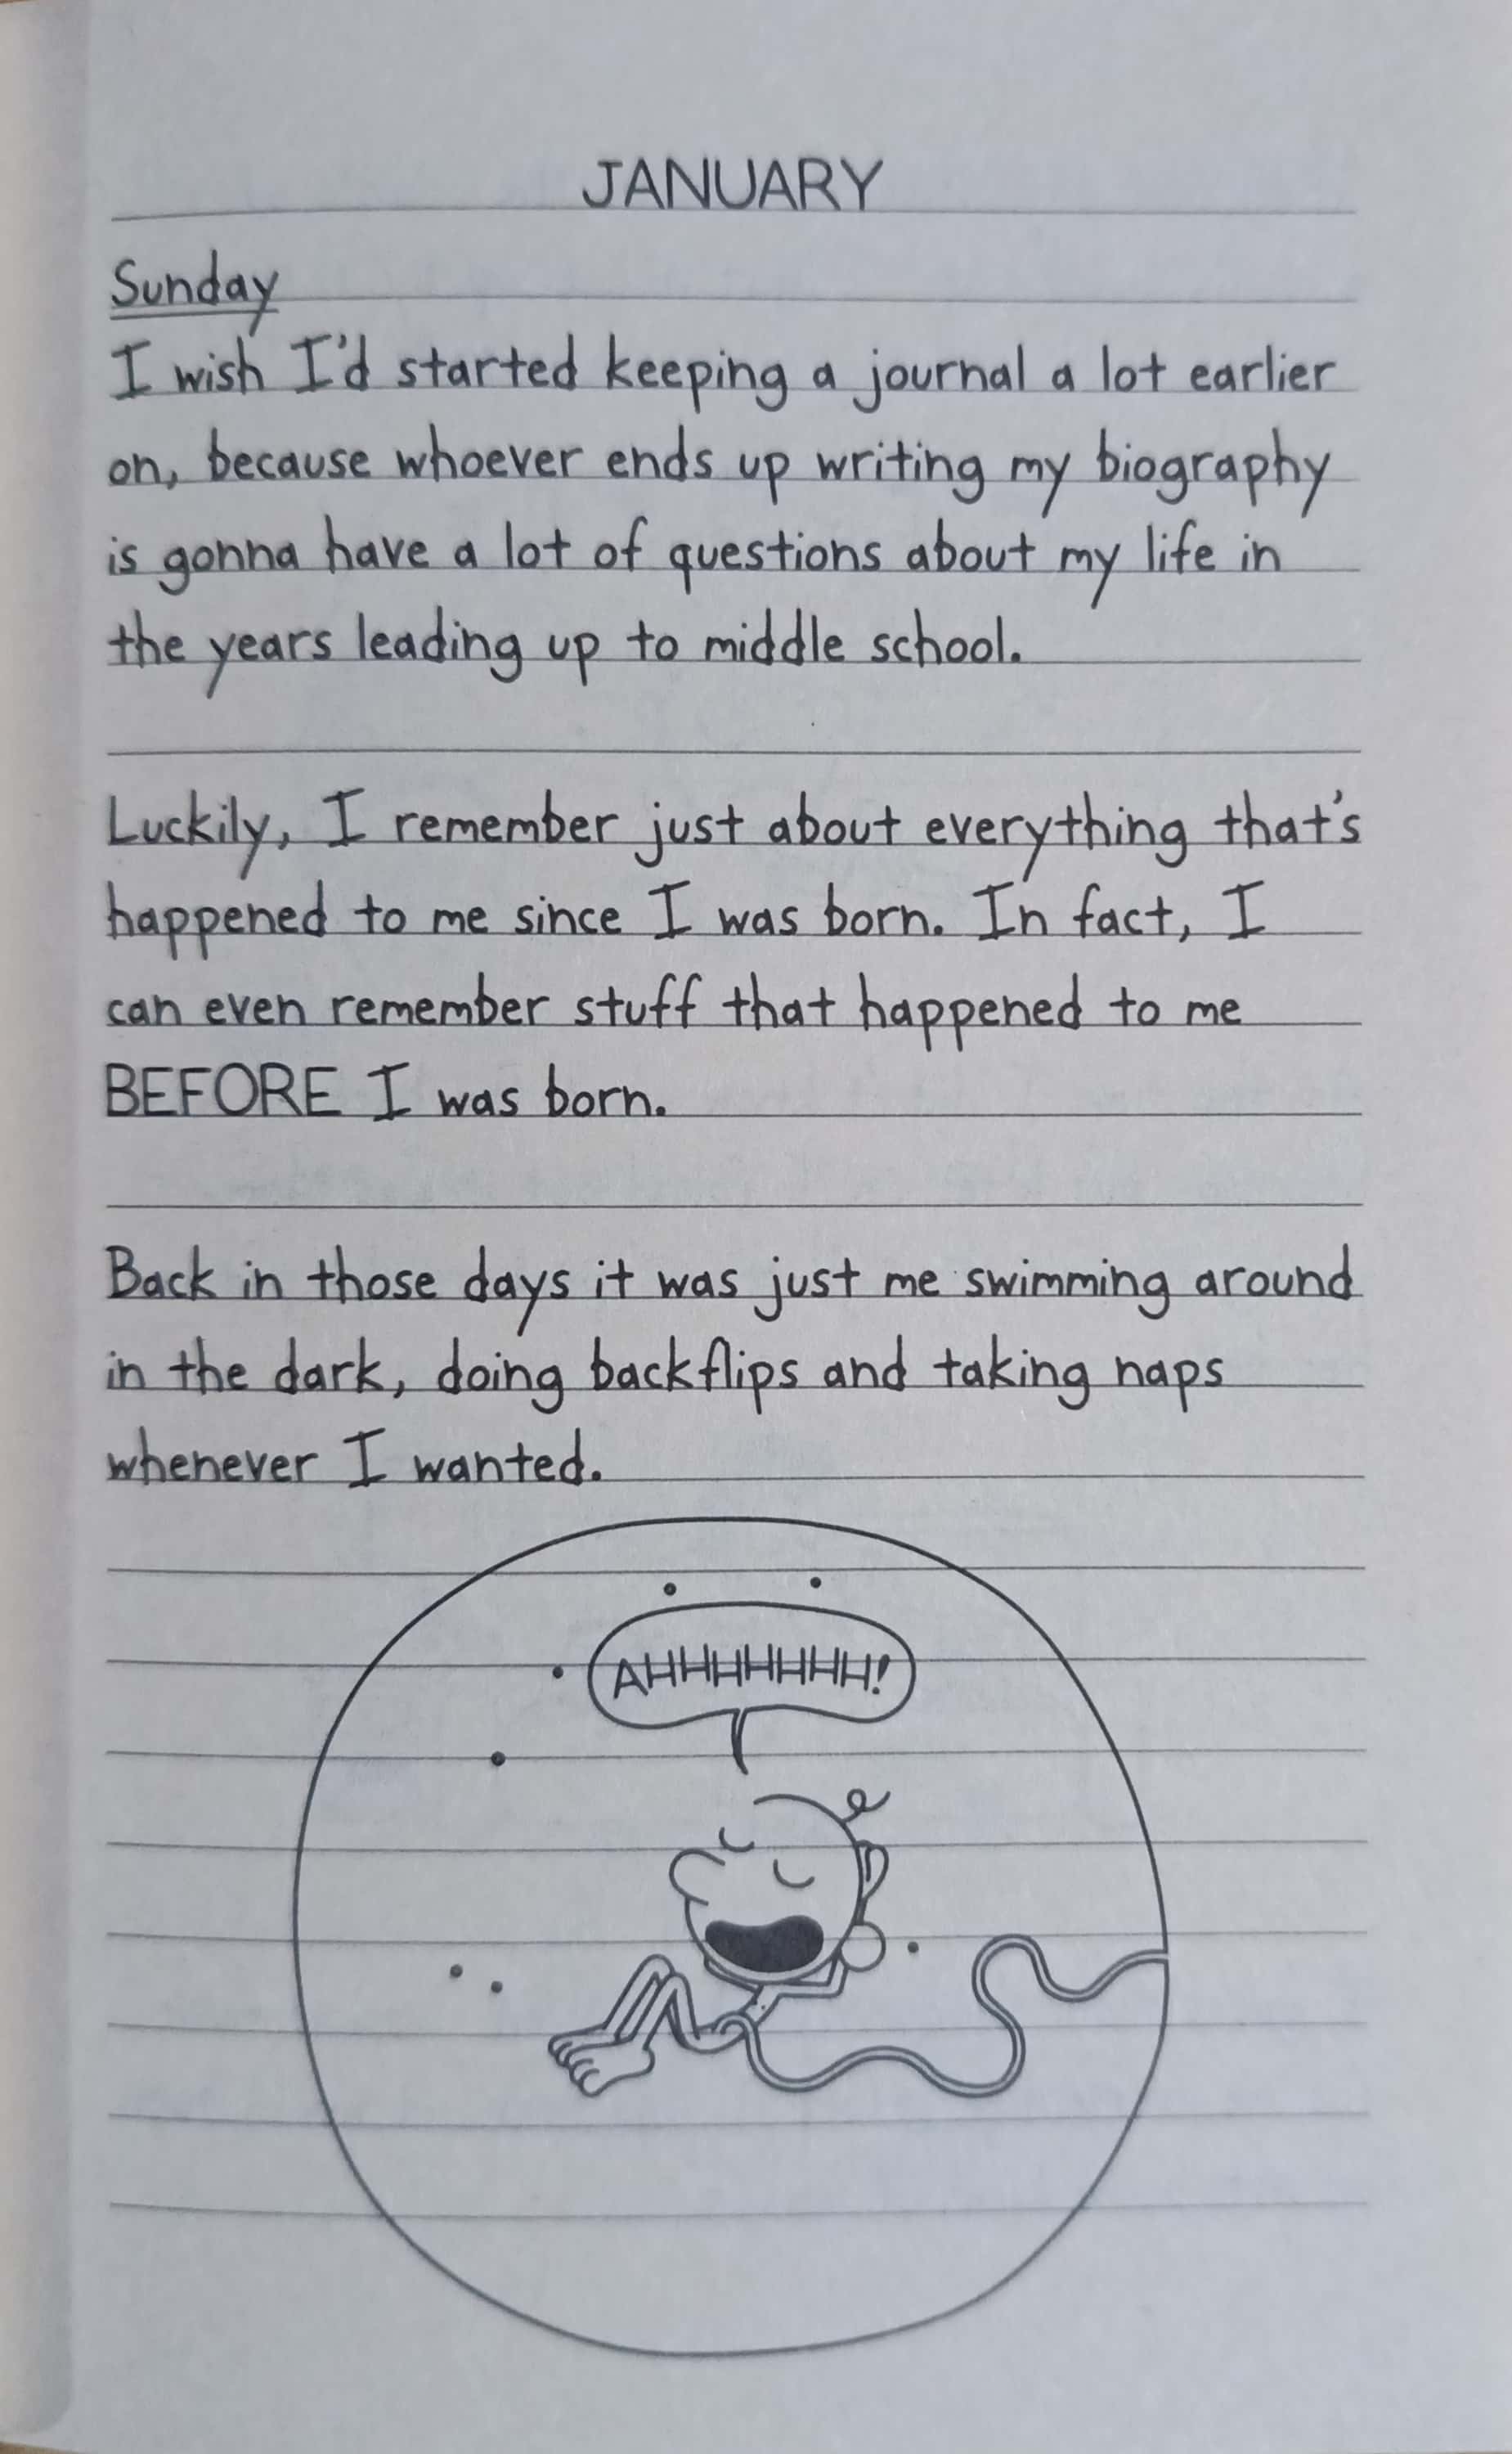 JANUARY
Sunday
I wish I'd started keeping a journal a lot earlier
on, because whoever ends up writing my biography
is gonna have a lot of questions about my life in
the years leading up to middle school.
Luckily, I remember just about everything that's
happened to me since I was born. In fact, I
can even remember stuff that happened to me
BEFORE I was born.
Back in those days it was just me swimming around
in the dark, doing backflips and taking naps
whenever I wanted.
AHHHHHHH!